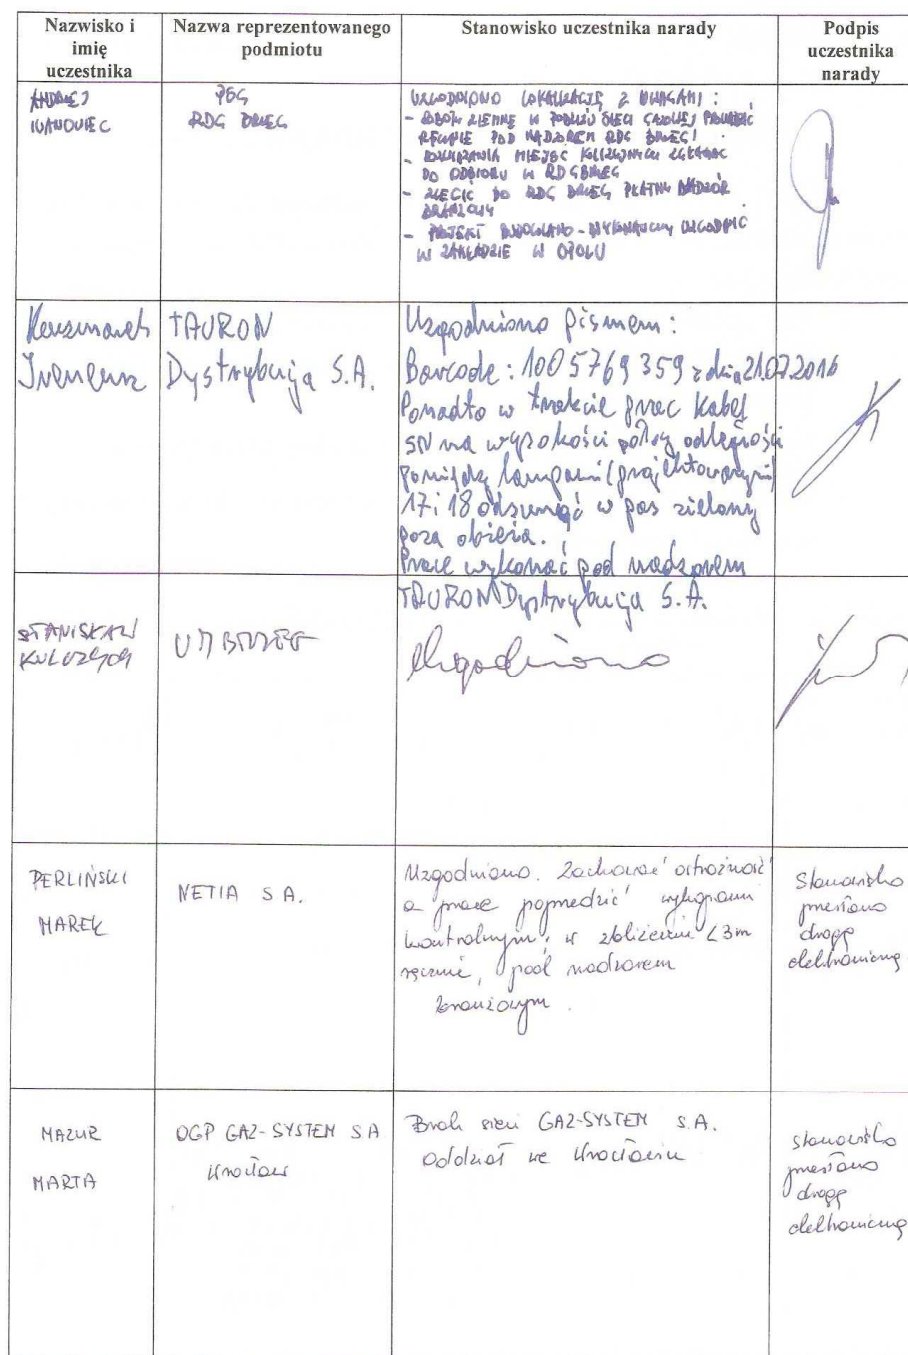 Nazwisko i
imię
uczestnika
Nazwa reprezentowanego
podmiotu
Stanowisko uczestnika narady
Podpis
uczestnika
narady
ANDRZEJ
IWANOWIEC
PSG
RDG BRZEG
UZGODNIONO LOKALIZACJĘ Z UWAGAMI :
- ROBOTY ZIEMNE W POBLIŻU SIECI GAZOWEJ PROWADZIĆ
RĘCZNIE POD NADZOREM RDG BRZEG!
- ROZWIĄZANIA MIEJSC KOLIZYJNYCH ZGŁASZAĆ
DO ODBIORU W RDG BRZEG
- ZLECIĆ DO RDG BRZEG PŁATNY NADZÓR
BRANŻOWY
- PROJEKT BUDOWLANO-WYKONAWCZY UZGODNIĆ
W ZAKŁADZIE W OPOLU
Ireneusz
TAURON
Dystrybucja S.A.
Uzgodniono pismem :
Barcode : 1005769359 z dnia 21.07.2016
Ponadto w trakcie prac kabel
SN na wysokości połowy odległości
pomiędzy lampami (projektowanymi)
17 i 18 odsunąć w pas zielony
poza obrzeża.
Prace wykonać pod nadzorem
TAURON Dystrybucja S.A.
STANISŁAW
UM BRZEG
Uzgodniono
PERLIŃSKI
MAREK
NETIA S A.
Uzgodniono. Zachować ostrożność
a prace poprzedzić wykopami
kontrolnymi, w zbliżeniu <3m
ręcznie, pod nadzorem
branżowym.
Stanowisko
przesłano
drogą
elektroniczną
MAZUR
MARTA
OGP GAZ-SYSTEM S.A
Wrocław
Brak sieci GAZ-SYSTEM S.A.
Oddział we Wrocławiu
stanowisko
przesłano
drogą
elektroniczną